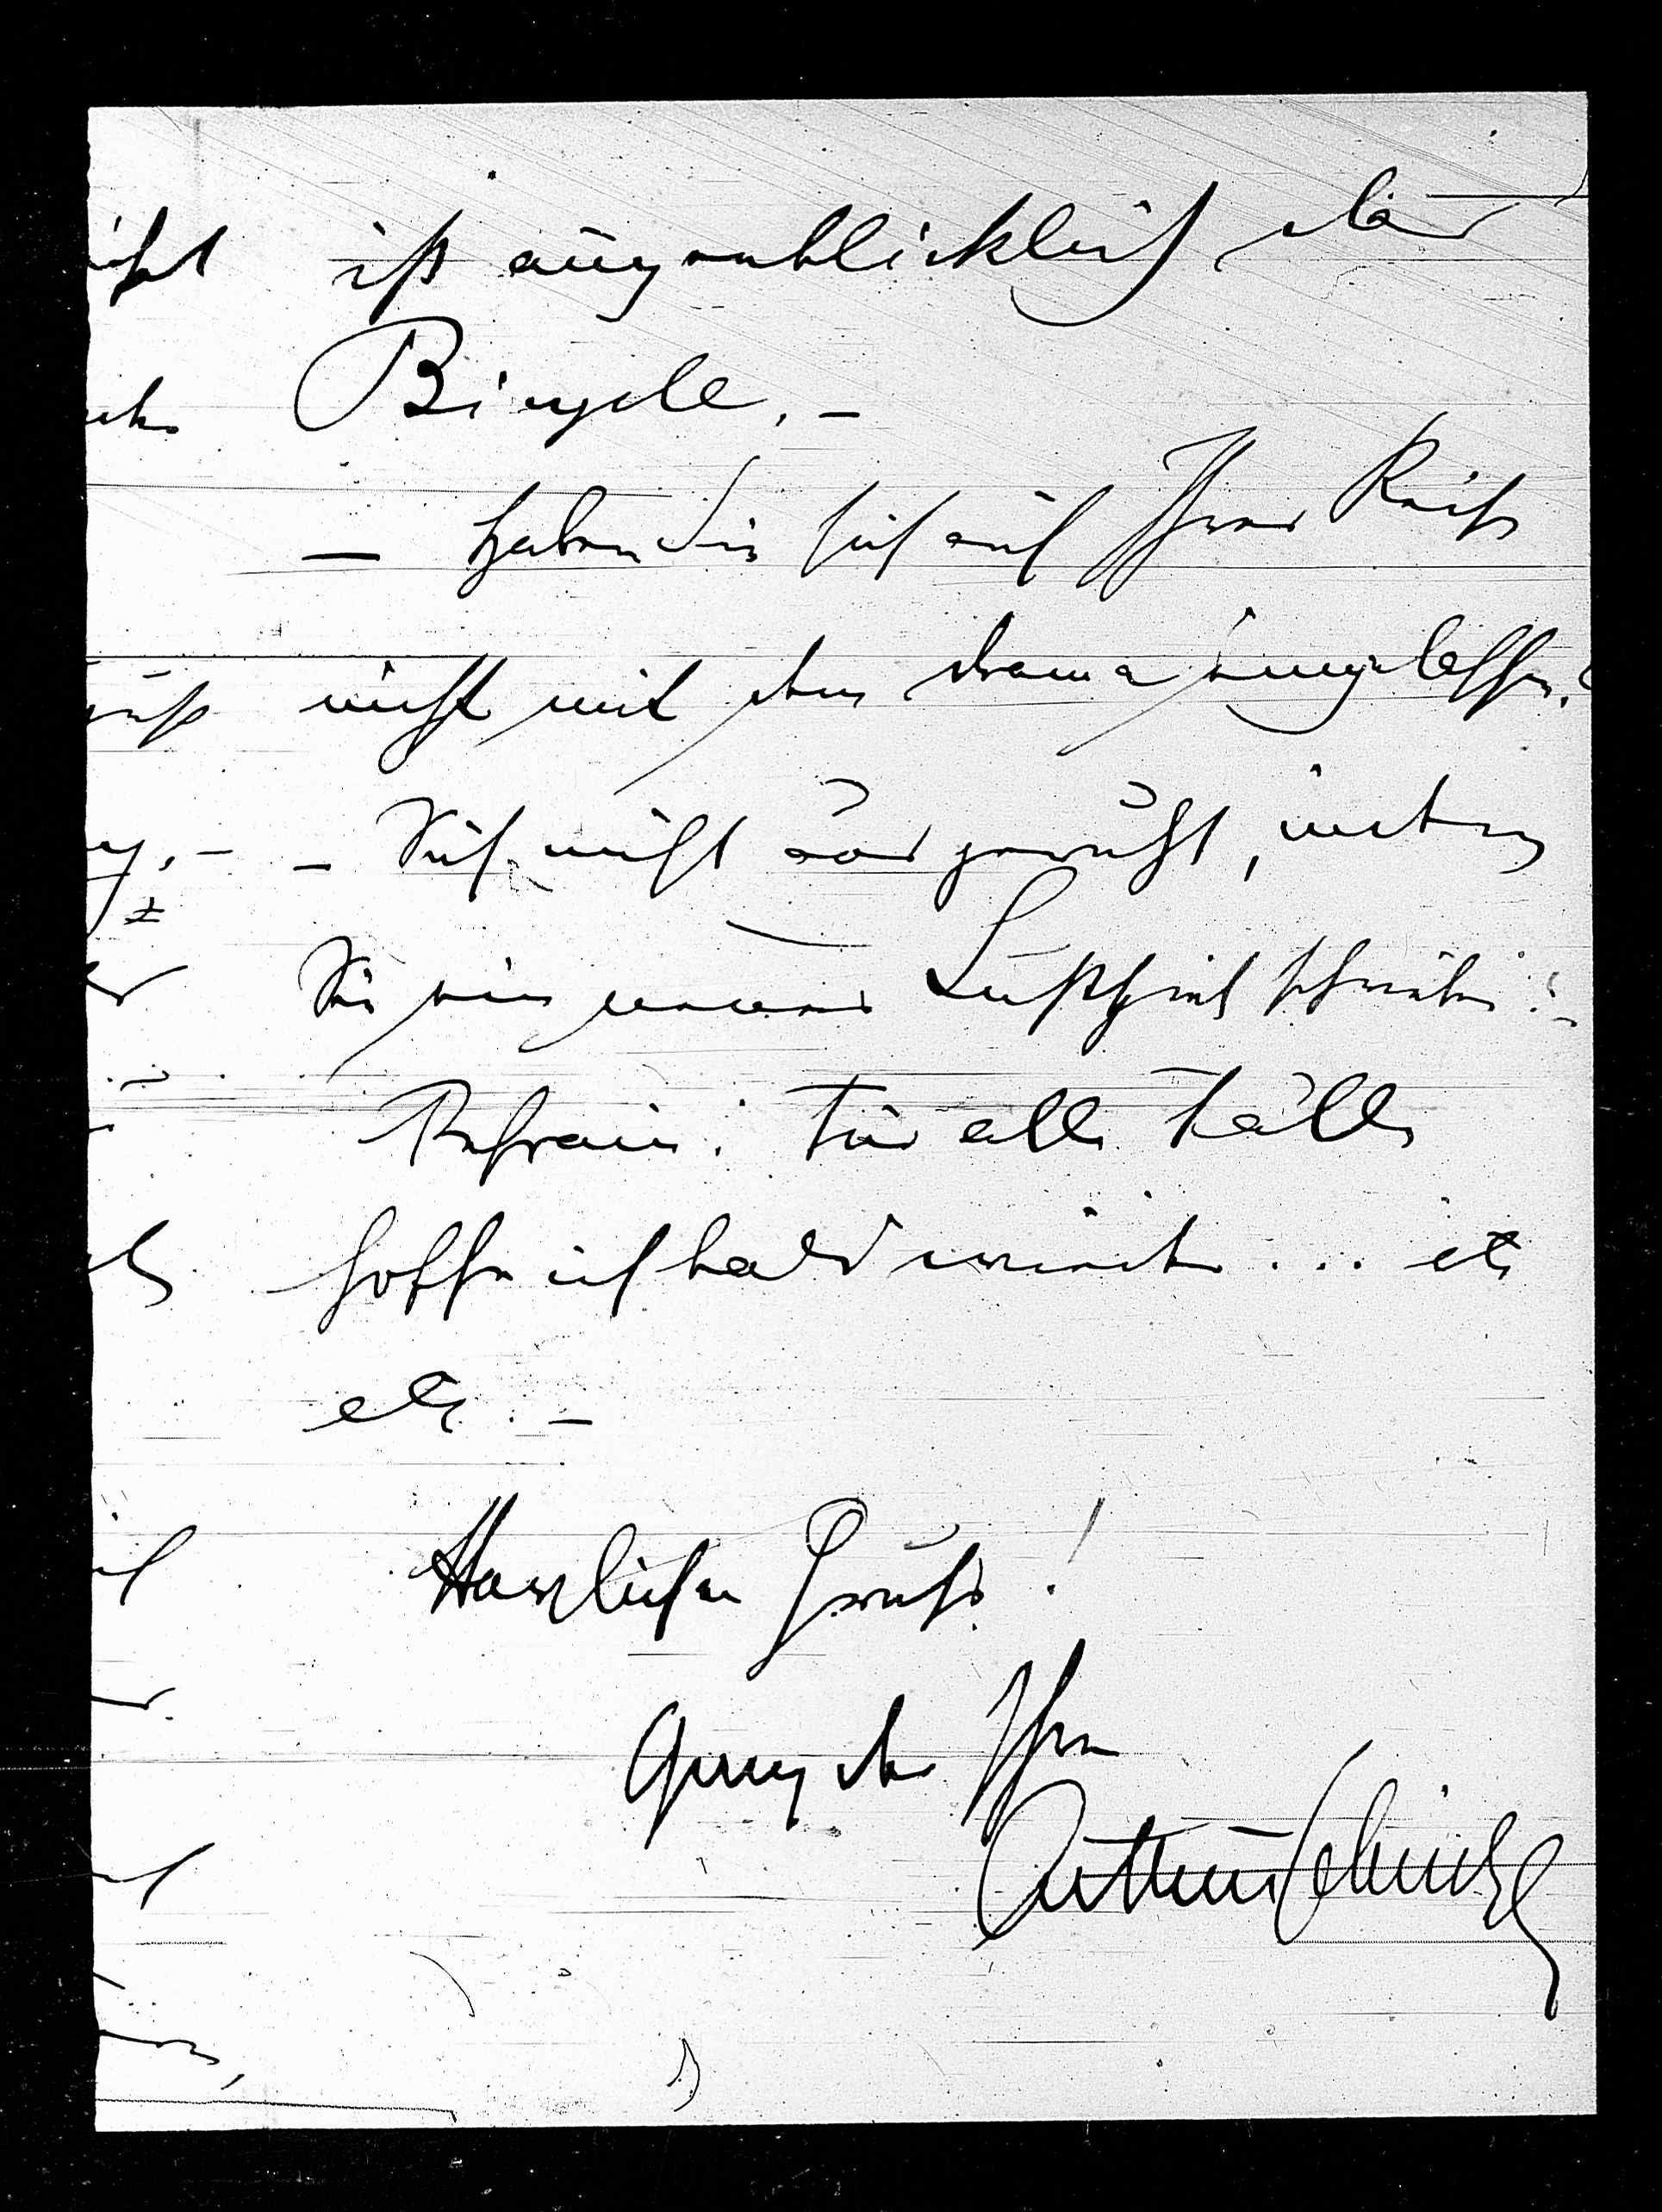 ist augenblicklich das
Bicycle. –
– Haben Sie sich auf Ihrer Reise
nicht mit dem Drama eingelassen?
– Sie nicht gewußt, indem
Sie ein neues Lustspiel schreiben? –
Refrain: Für alle Fälle
hoffe ich bald wieder ... etc
etc. –
Herzlichen Gruß!
Ganz der Ihre
ArthurSchnitzl